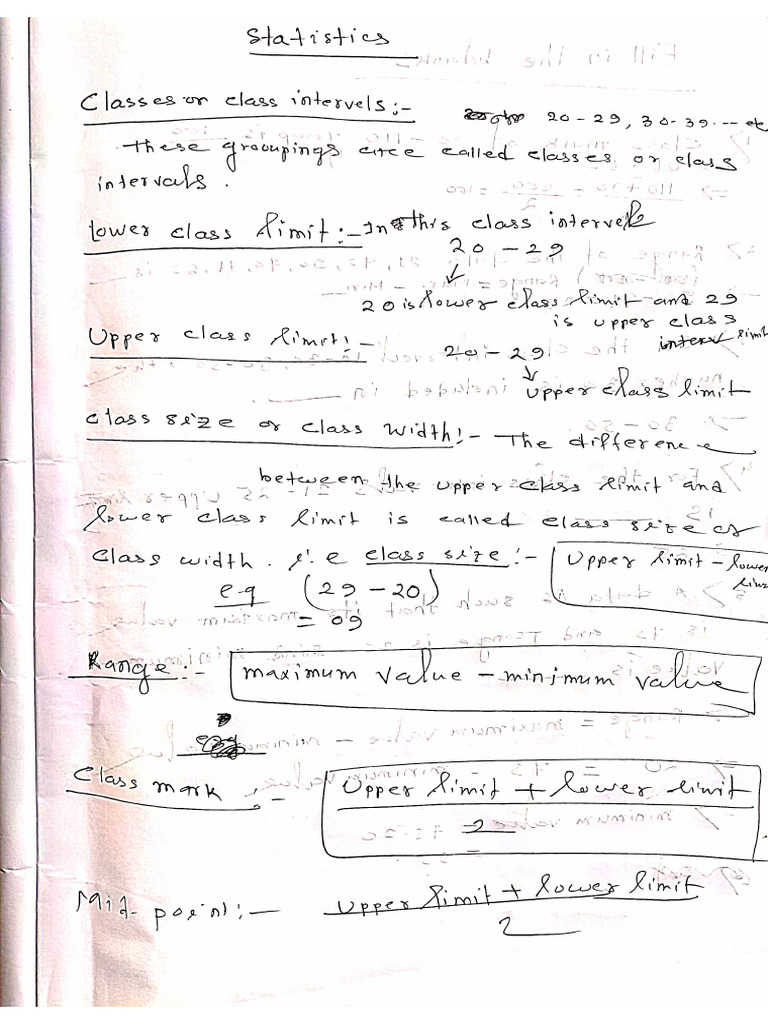 Statistics
Classes or class intervals:- 20-29, 30-39.--etc
These groupings are called classes or class
intervals.
Lower class limit:- In this class interval
20-29
20 is lower class limit and 29
is upper class
Upper class limit:- 20-29 limit
upper class limit
Class size or class width:- The difference
between the upper class limit and
lower class limit is called class size or
Class width. i.e class size:- Upper limit - lower
e.g (29-20)
= 09
Range:- maximum value - minimum value
Class mark:- Upper limit + lower limit
2
Mid-point:- upper limit + lower limit
2